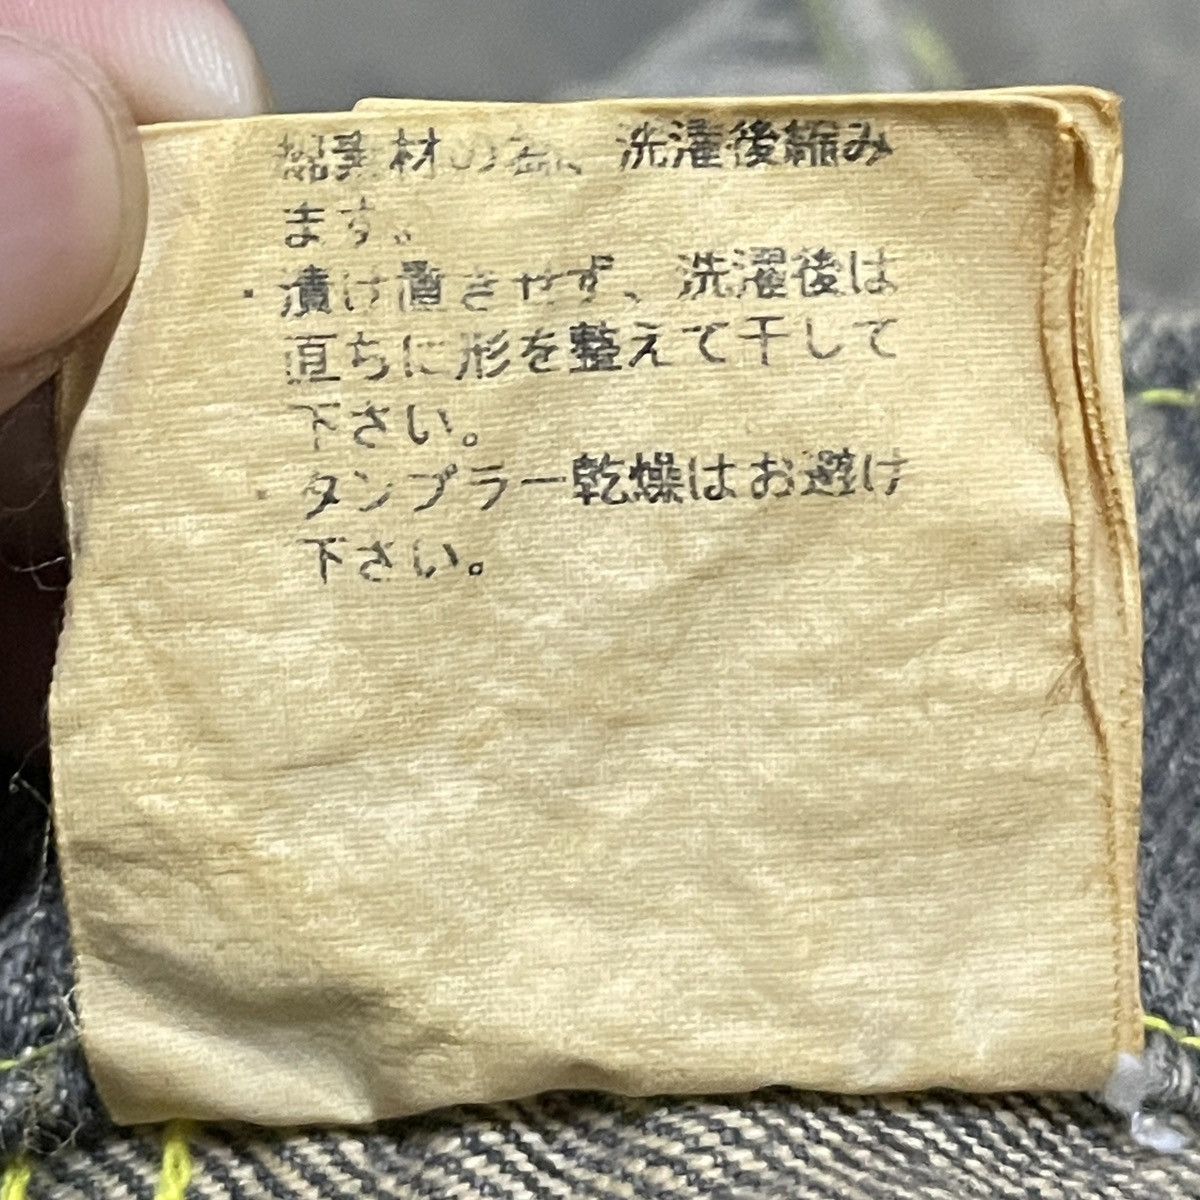 素材の為、洗濯後縮み
ます。
・漬け置きせず、洗濯後は
直ちに形を整えて干して
下さい。
・タンブラー乾燥はお避け
下さい。